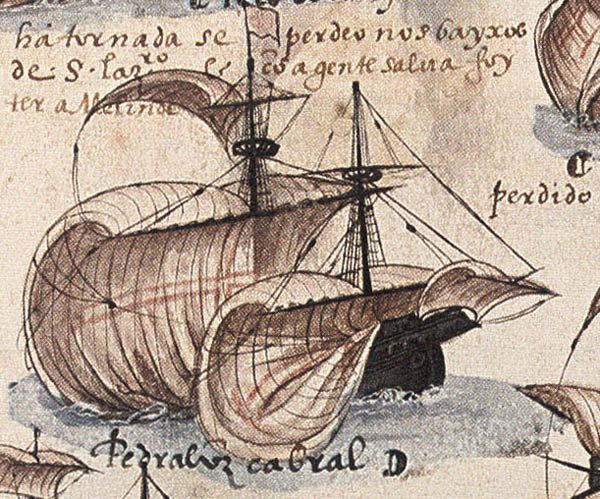 ha tornada se perdeo nos bayxos
de S. Lazro e a gente salva foy
ter a Melinde
perdido
Pedralvz cabral D